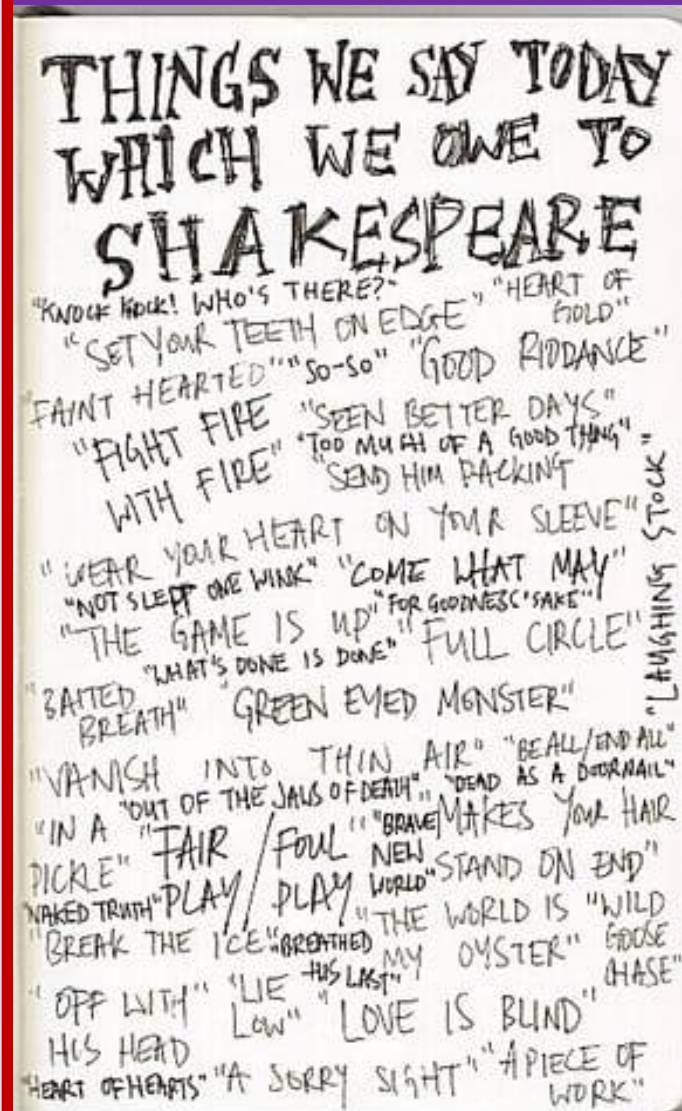 THINGS WE SAY TODAY
WHICH WE OWE TO
SHAKESPEARE
"KNOCK KNOCK! WHO'S THERE?" "HEART OF GOLD"
"SET YOUR TEETH ON EDGE"
"FAINT HEARTED" "SO-SO" "GOOD RIDDANCE"
"FIGHT FIRE WITH FIRE" "SEEN BETTER DAYS"
"TOO MUCH OF A GOOD THING"
"SEND HIM PACKING
"WEAR YOUR HEART ON YOUR SLEEVE"
"LAUGHING STOCK"
"NOT SLEPT ONE WINK" "COME WHAT MAY"
"THE GAME IS UP" "FOR GOODNESS' SAKE"
"WHAT'S DONE IS DONE" "FULL CIRCLE"
"BAITED BREATH" "GREEN EYED MONSTER"
"VANISH INTO THIN AIR" "BE ALL/END ALL"
"OUT OF THE JAWS OF DEATH" "DEAD AS A DOORNAIL"
"IN A PICKLE" "FAIR PLAY/FOUL PLAY" "BRAVE NEW WORLD" "MAKES YOUR HAIR STAND ON END"
"NAKED TRUTH"
"BREAK THE ICE" "BREATHED HIS LAST" "THE WORLD IS MY OYSTER" "WILD GOOSE CHASE"
"OFF WITH HIS HEAD" "LIE LOW" "LOVE IS BLIND"
"HEART OF HEARTS" "A SORRY SIGHT" "A PIECE OF WORK"